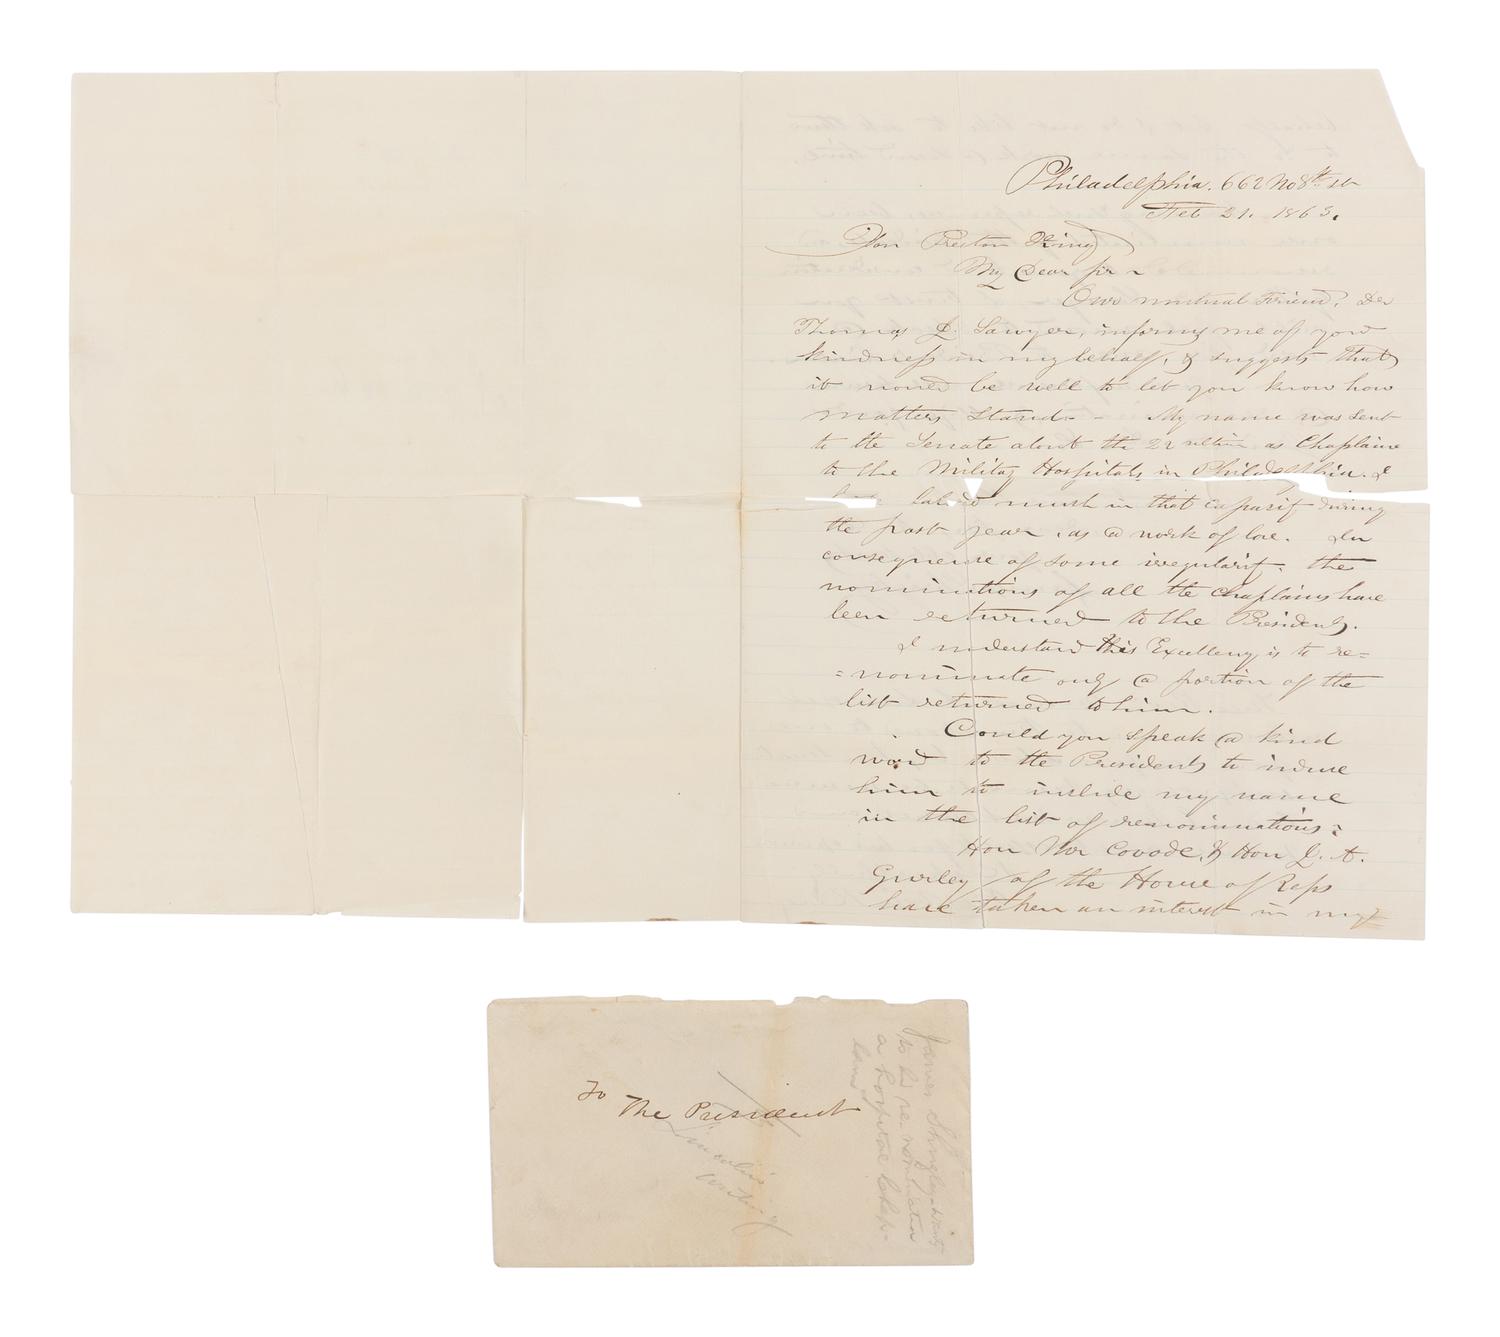 Philadelphia. 662 No 8th st
Feb 21. 1863.
Hon Preston King
My Dear Sir ~
Our mutual Friend, Dr
Thomas J. Sawyer, informs me of your
kindness in my behalf, & suggests that
it would be well to let you know how
matters stand - - My name was sent
to the Senate about the 22 ultim as Chaplain
to the Military Hospitals in Philadelphia. I
have labored much in that capasity during
the past year, as a work of love. In
consequence of some irregularity. the
nominations of all the chaplains have
been returned to the President.
I understand this Excellency is to re=
=nominate only a portion of the
list returned to him.
Could you speak a kind
word to the President to induce
him to include my name
in the list of renominations?
Hon Mr Covode, & Hon J. A.
Gurley of the House of Reps
have taken an interest in my
To The President
Lincoln's
James Shrigley - wants
to be re-nomination
a hospital Chap-
lain